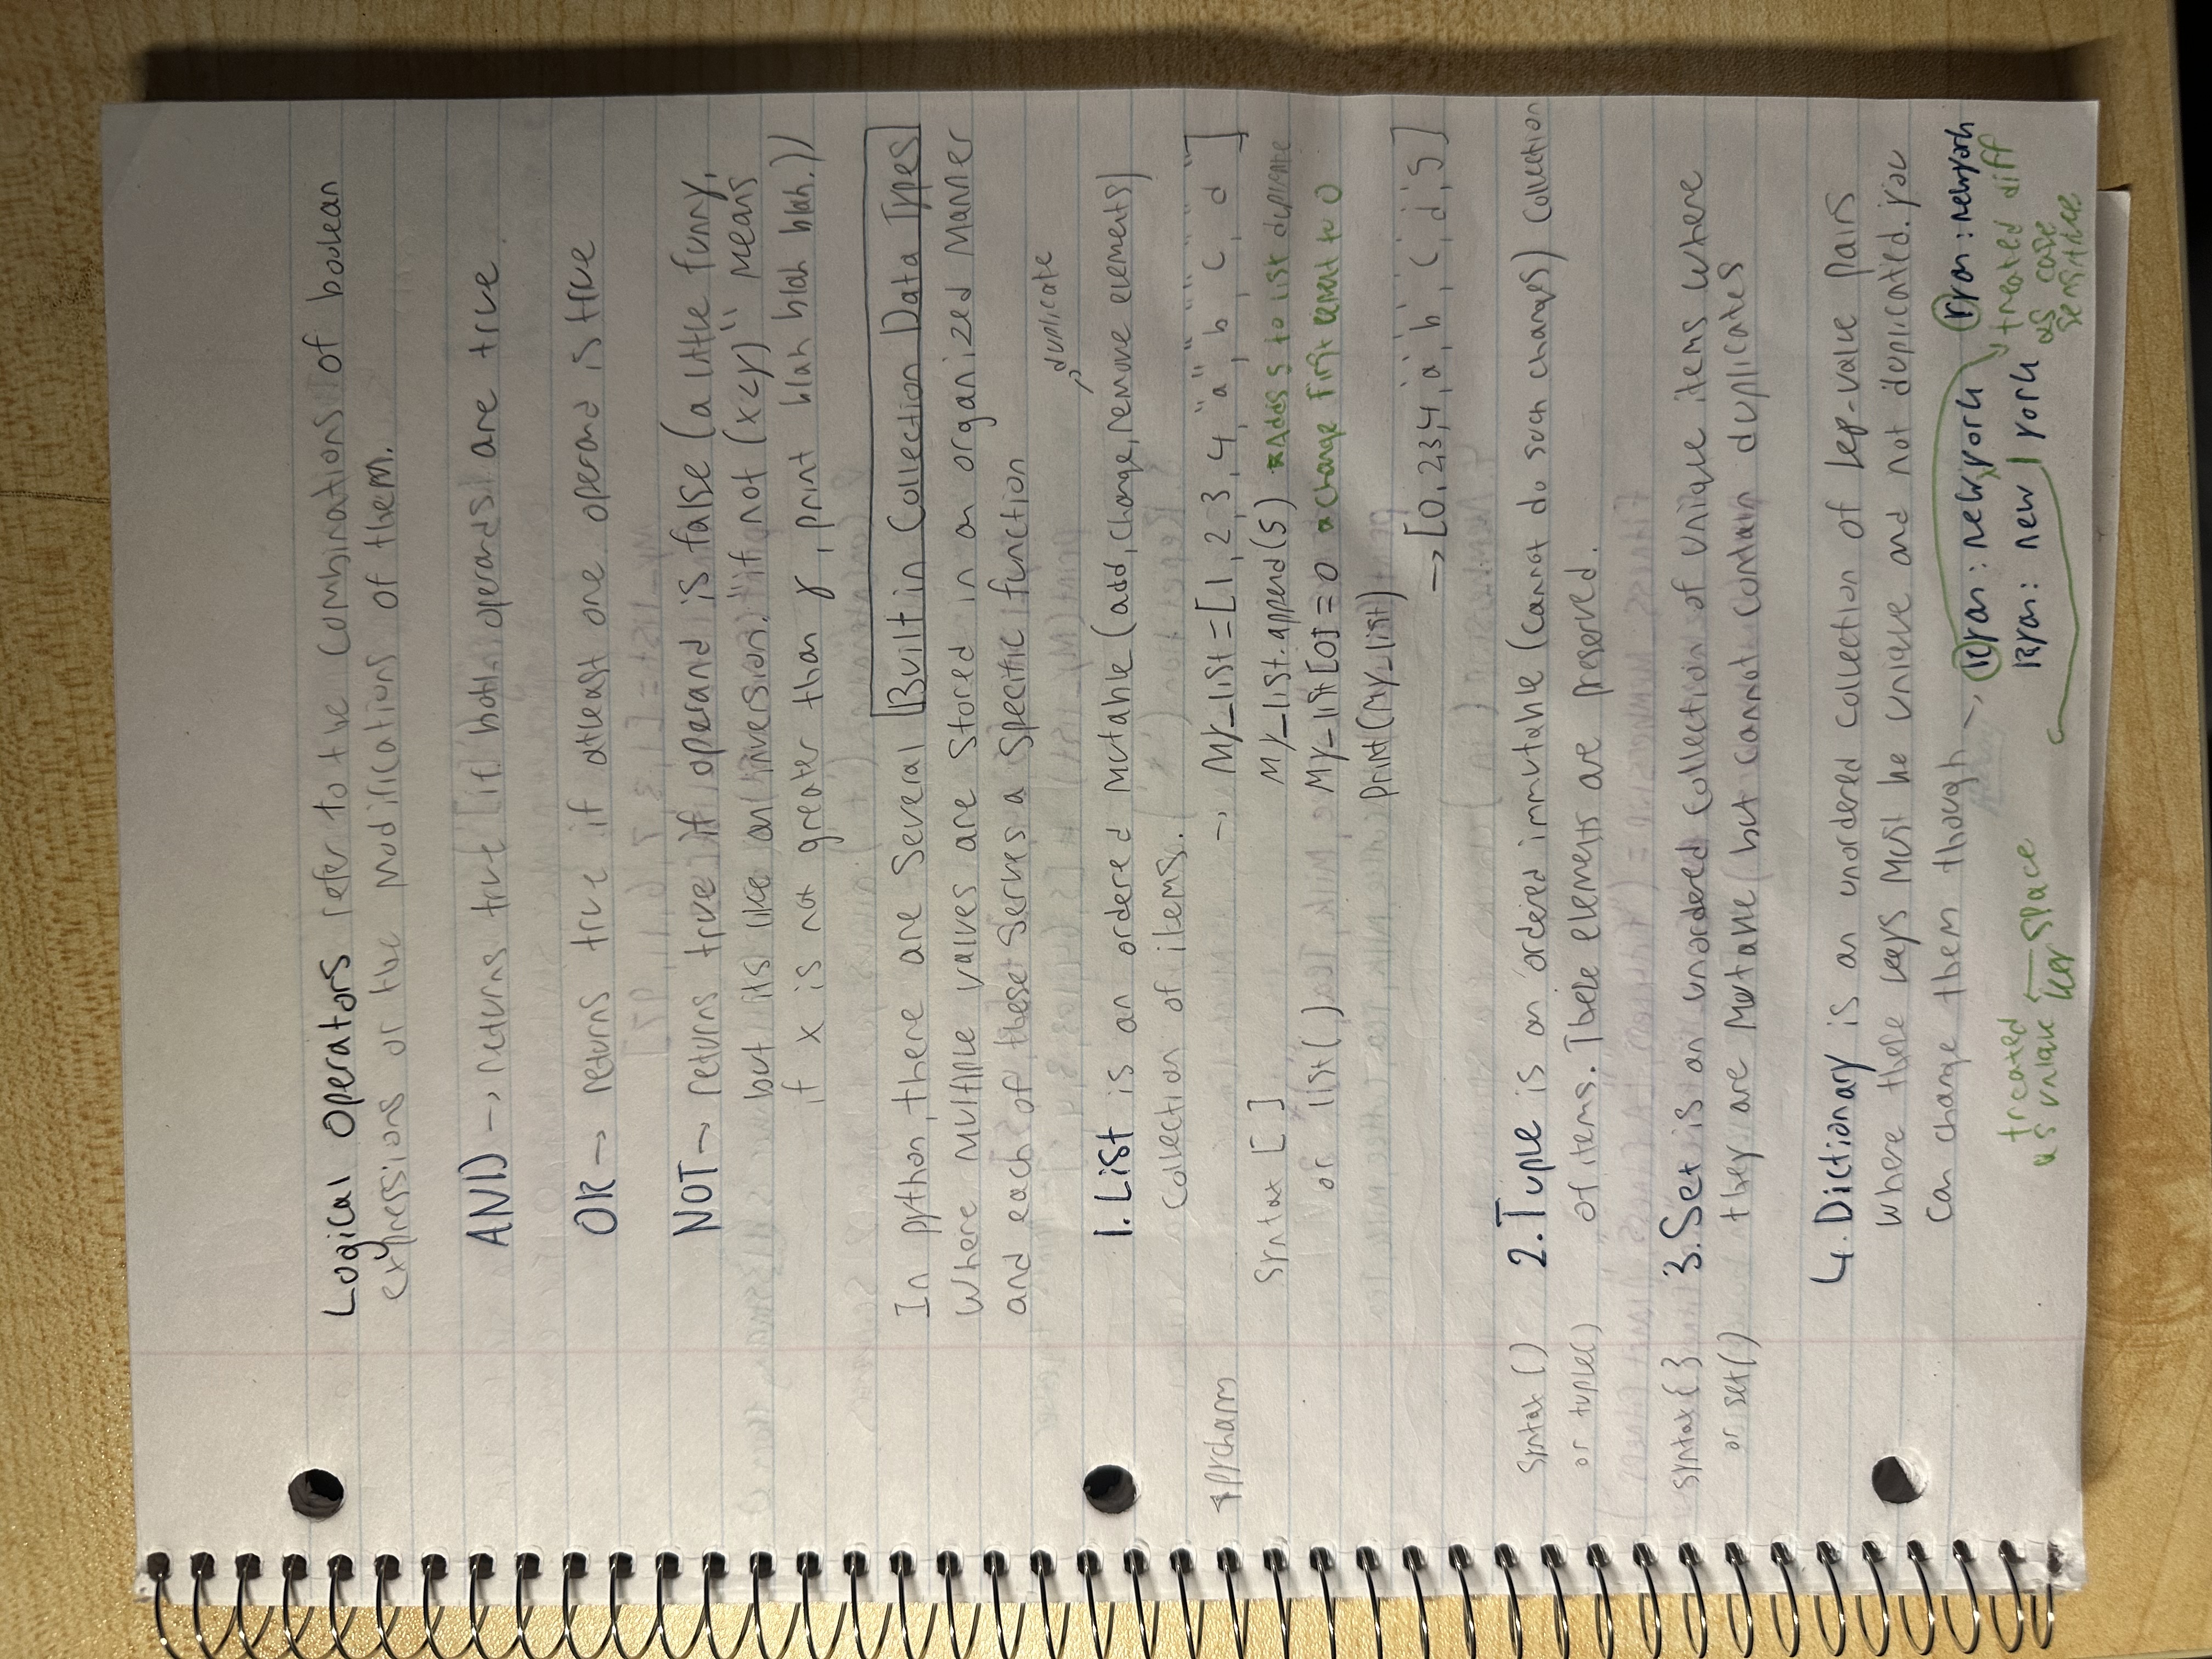 Logical Operators refer to the combinations of boolean
expressions or the modifications of them.
AND → returns true if both operands are true
OR → returns true if atleast one operand is true
NOT → returns true if operand is false (a little funny,
but its like an inversion. "if not (x<y)" means
if x is not greater than y, print blah blah blah.))
In python, there are several Built in Collection Data Types
where multiple values are stored in an organized manner
and each of these serves a specific function
→ duplicate
1. List is an ordered mutable (add, change, remove elements)
collection of items.
pycharm
→ My_list = [1, 2, 3, 4, "a", "b", "c", "d"]
syntax [ ]
My_list.append(5) Adds 5 to list duplicate
or list( )
My_list[0] = 0 change first element to 0
print(My_list)
→ [0, 2,3,4, 'a', 'b', 'c', 'd', 5]
syntax ()
or tuple()
2. Tuple is an ordered immutable (cannot do such changes) collection
of items. These elements are preserved.
syntax { }
or set()
3. Set is an unordered collection of unique items where
they are mutable but cannot contain duplicates
4. Dictionary is an unordered collection of key-value pairs
where these keys must be unique and not duplicated. you
can change them though → Ryan: newyork ryan: newyork
Ryan: new york
treated
as unique key ← space
treated diff
as case
sensitive